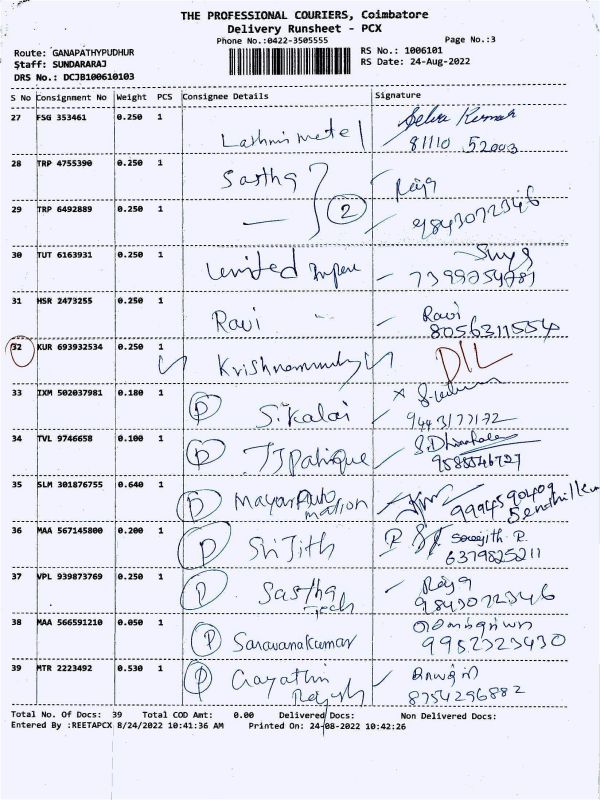 THE PROFESSIONAL COURIERS, Coimbatore
Delivery Runsheet - PCX
Phone No.:0422-3505555
Page No.:3
Route: GANAPATHYPUDHUR
RS No.: 1006101
Staff: SUNDARARAJ
RS Date: 24-Aug-2022
DRS No.: DCJB100610103
S No Consignment No Weight PCS Consignee Details Signature
27 FSG 353461 0.250 1 Lashmi metel Selva Kumar
81110 52003
28 TRP 4755390 0.250 1 Sastha Raja
29 TRP 6492889 0.250 1 2 9843072346
30 TUT 6163931 0.250 1 United
7399754781
31 HSR 2473255 0.250 1 Ravi Ravi
8056311554
32 KUR 693932534 0.250 1 DIL
33 IXM 502037981 0.180 1 P S. Kalai
9443177172
34 TVL 9746658 0.100 1 P
9588546727
35 SLM 301876755 0.640 1 P Mayan Automation
9994590409
Senthilku
36 MAA 567145800 0.200 1 P SriJith
6379825211
37 VPL 939873769 0.250 1 P Sastha Tech Raja
9843072346
38 MAA 566591210 0.050 1 P Saravanakumar
9952323430
39 MTR 2223492 0.530 1 P Gayathri Rajesh காயத்ரி
8754296882
Total No. Of Docs: 39 Total COD Amt: 0.00 Delivered Docs: Non Delivered Docs:
Entered By :REETAPCX 8/24/2022 10:41:36 AM Printed On: 24-08-2022 10:42:26